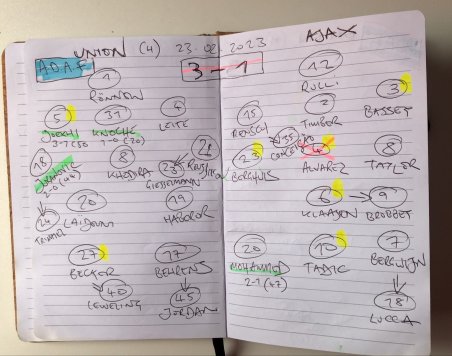 UNION (4) 23.02.2023
A.D.A.F
3-1
1
RÖNNOW
5 31 4
JURANOVIC KNOCHE LEITE
3-1 (50) 1-0 (20)
18 8 23 → 21
KHEDIRA GIESSELMANN
2-0 (44)
20 19
LAIDOUNI HABERER
24
TRIMMEL
27 17
BECKER BEHRENS
40 45
LEWELING JORDAN
AJAX
12
RULLI
15 2 3
RENSCH TIMBER BASSEY
23 35 4 8
BERGHUIS ALVAREZ TAYLOR
6 → 9
KLAASSEN BROBBEY
20 10 7
MOHAMMED TADIC BERGWIJN
2-1 (47)
18
LUCCA